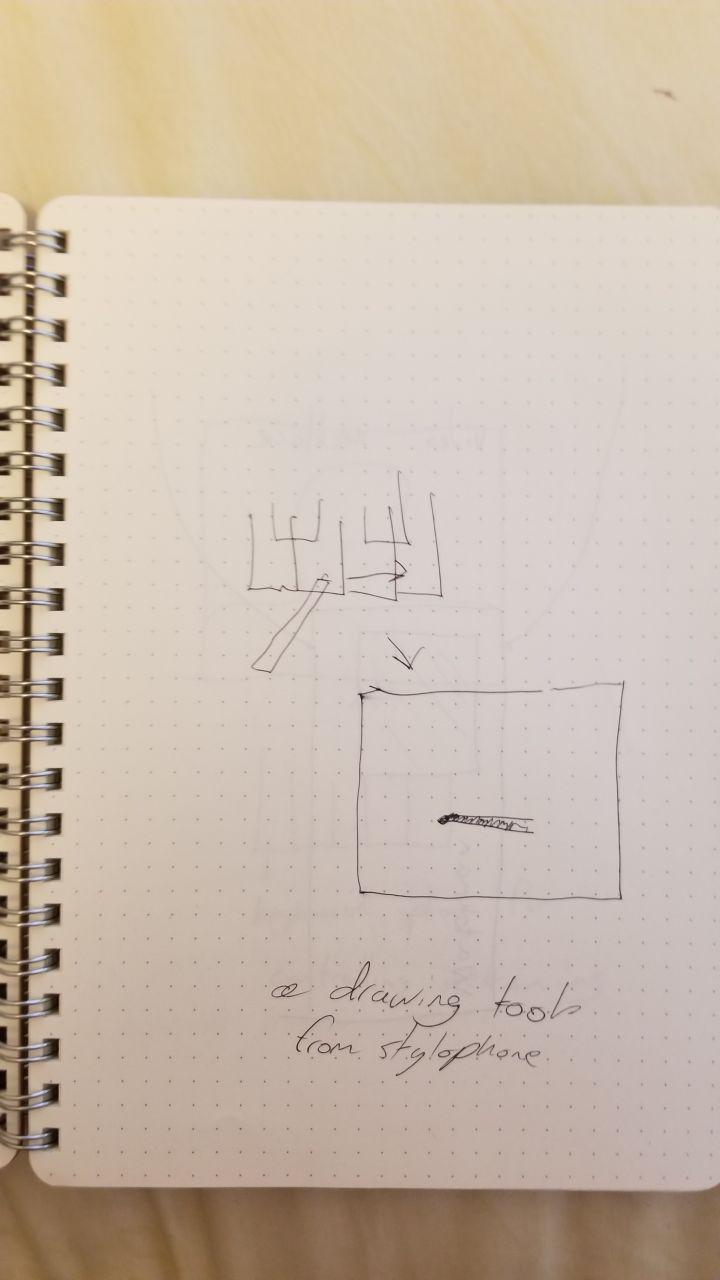 a drawing tool
from stylophone